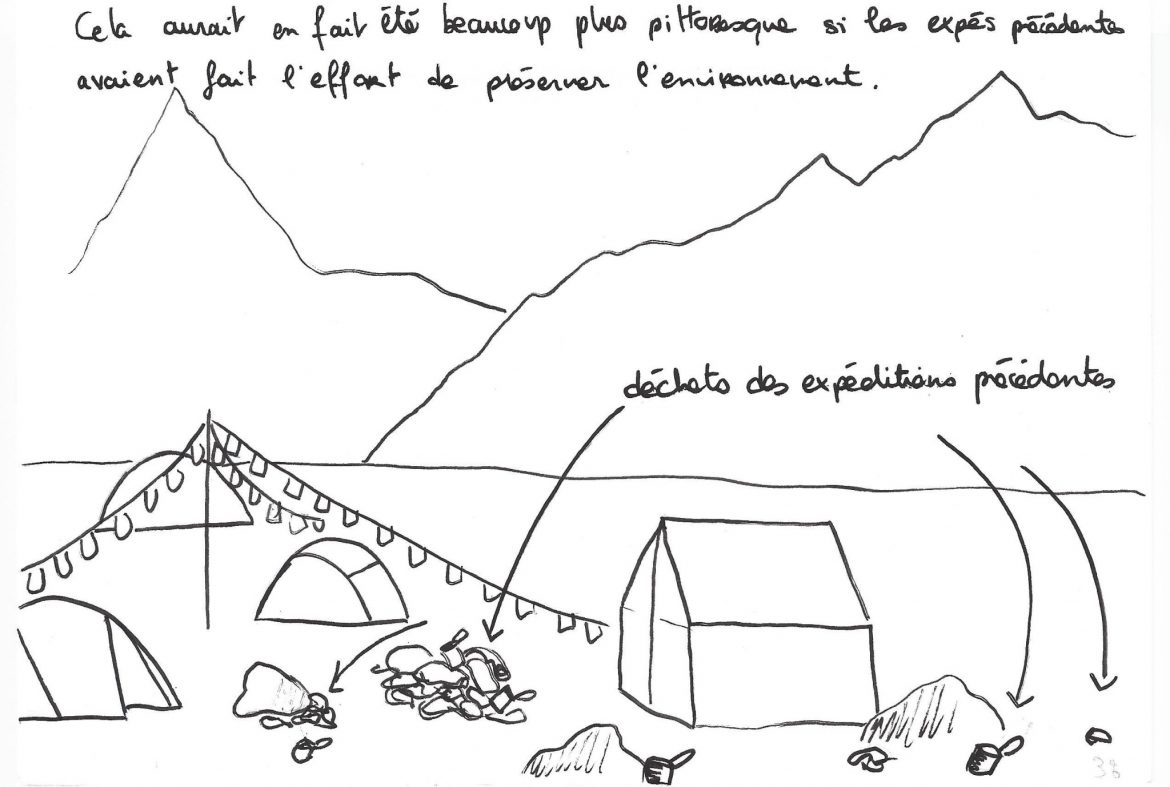 Cela aurait en fait été beaucoup plus pittoresque si les expés précédentes
avaient fait l'effort de préserver l'environnement.
déchets des expéditions précédentes
38